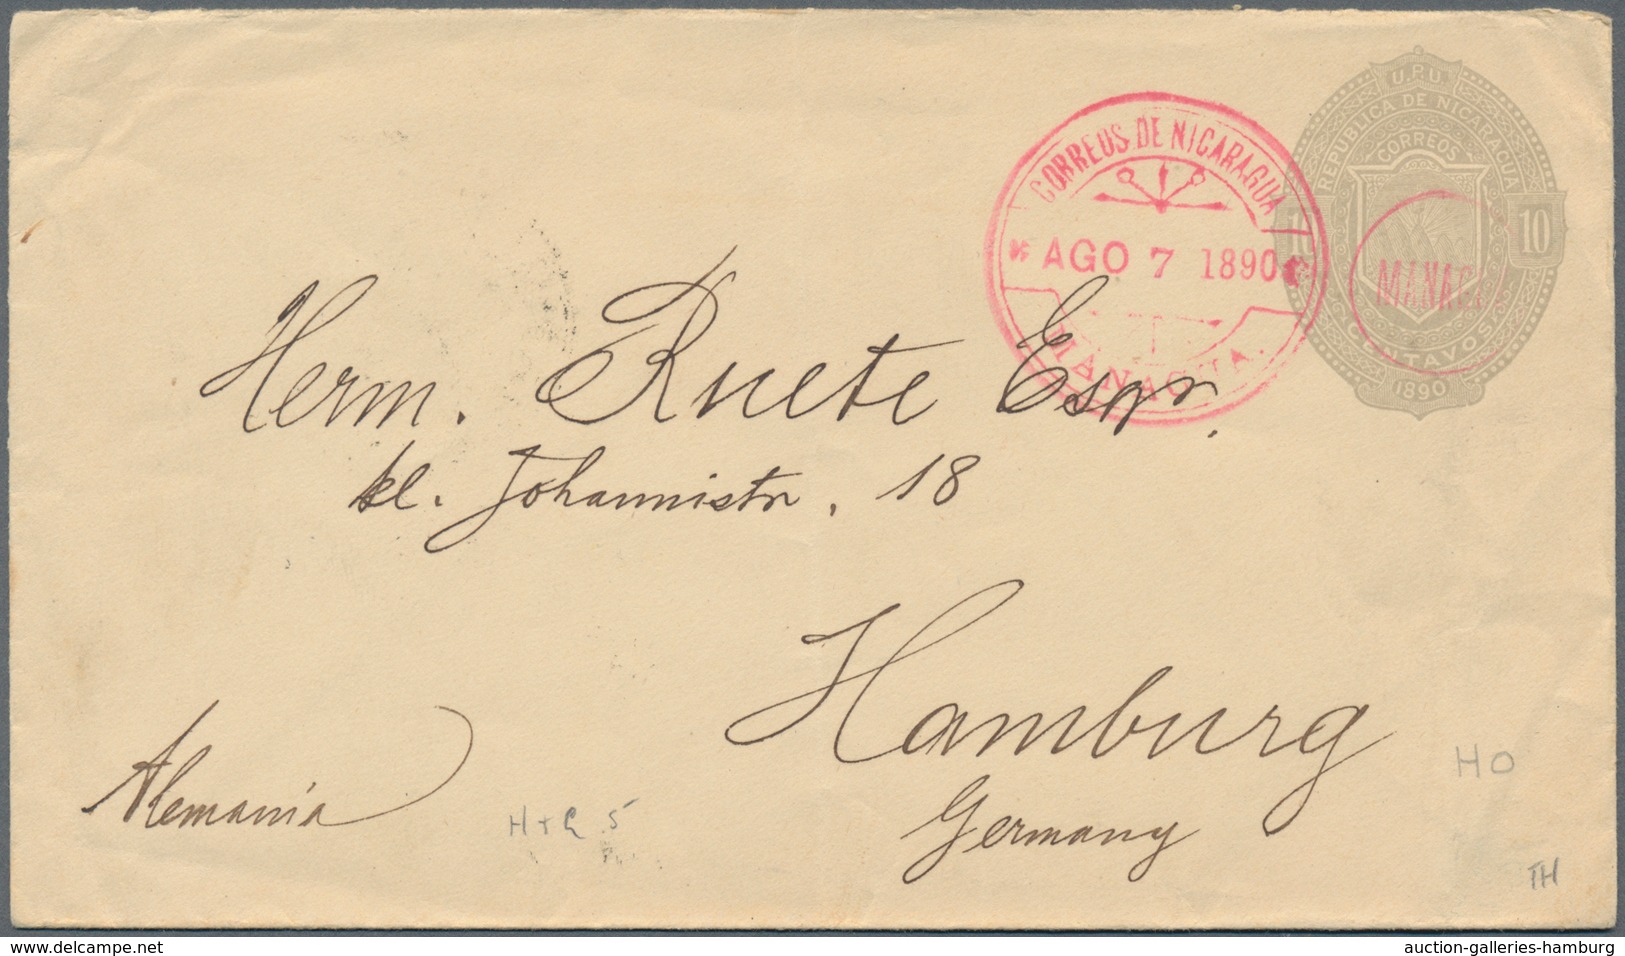 U.P.U.
REPUBLICA DE NICARAGUA
CORREOS
10 10
CENTAVOS
1890
CORREOS DE NICARAGUA
* AGO 7 1890
MANAGUA.
MANAGU
Herrn. Ruete Esqr.
kl. Johannistr. 18
Hamburg
Germany
Alemania
H O
H + G 5
TH
www.delcampe.net
auction-galleries-hamburg